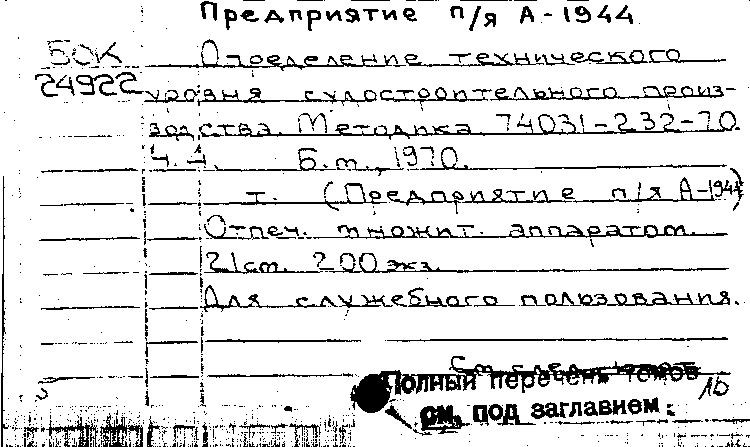 Предприятие п/я А-1944
БОК Определение технического
24922 уровня судостроительного произ-
водства. Методика 74031-232-70
Ч. 4. Б.м., 1970.
т. (Предприятие п/я А-1944)
Отпеч. множит. аппаратом.
21 ст. 200 экз.
Для служебного пользования.
Полный перечень томов
см. под заглавием: